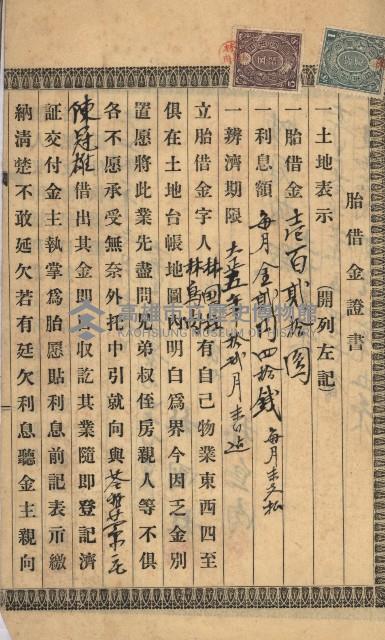 胎借金證書
一土地表示 (開列左記)
一胎借金 壱百貳拾圓
一利息額 每月金貳円四拾錢 每月末支払
一辨濟期限 大正五年拾弍月末日迄
立胎借金字人 林 林 有自己物業東西四至
俱在土地台帳地圖內明白爲界今因乏金別
置愿將此業先盡問兄弟叔侄房親人等不俱
各不愿承受無奈外托中引就向與
陳冠雄借出其金即日收訖其業隨即登記濟
証交付金主執掌爲胎愿貼利息前記表示繳
納清楚不敢延欠若有延欠利息聽金主親向
高雄市立歷史博物館
KAOHSIUNG MUSEUM OF HISTORY